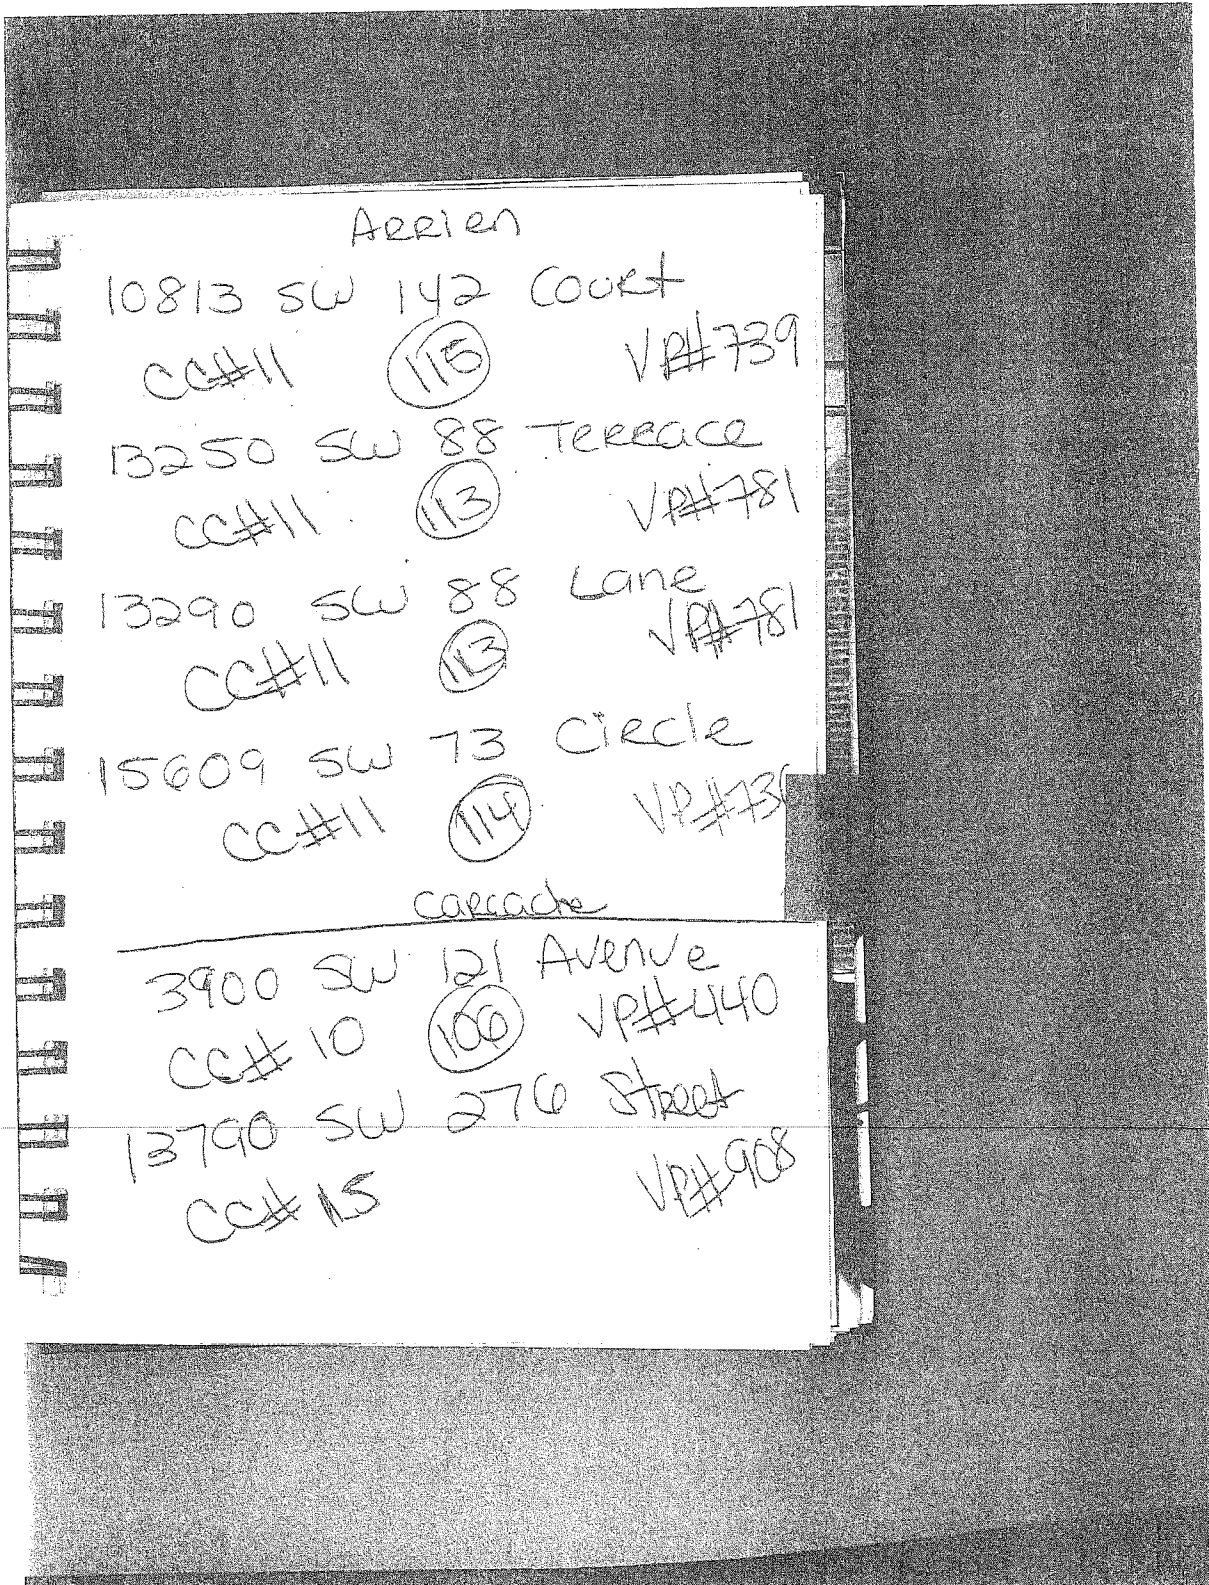 Arrien
10813 SW 142 Court
CC#11 115 VP#739
13250 SW 88 Terrace
CC#11 113 VP#781
13290 SW 88 Lane
CC#11 113 VP#781
15609 SW 73 Circle
CC#11 114
Carcache
3900 SW 121 Avenue
CC#10 106 VP#440
13790 SW 276 Street
CC#15 VP#908